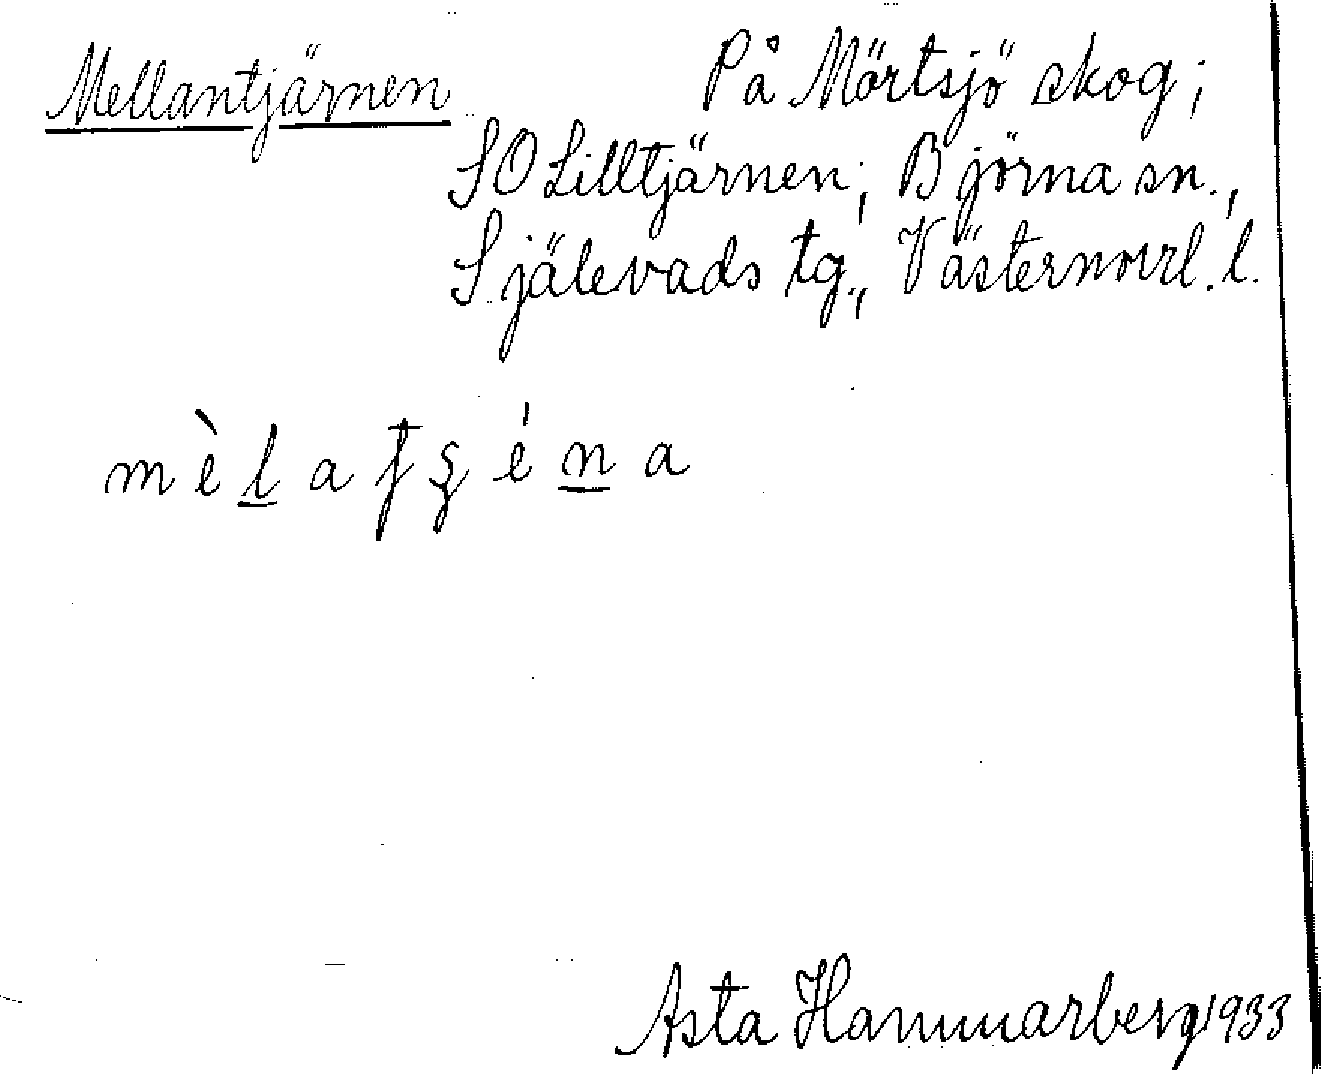 Mellantjärnen På Mörtsjö skog;
SO Lilltjärnen; Björna sn.,
Själevads tg., Västernorrl. l.
mèlaʈʂéna
Asta Hammarberg 1933